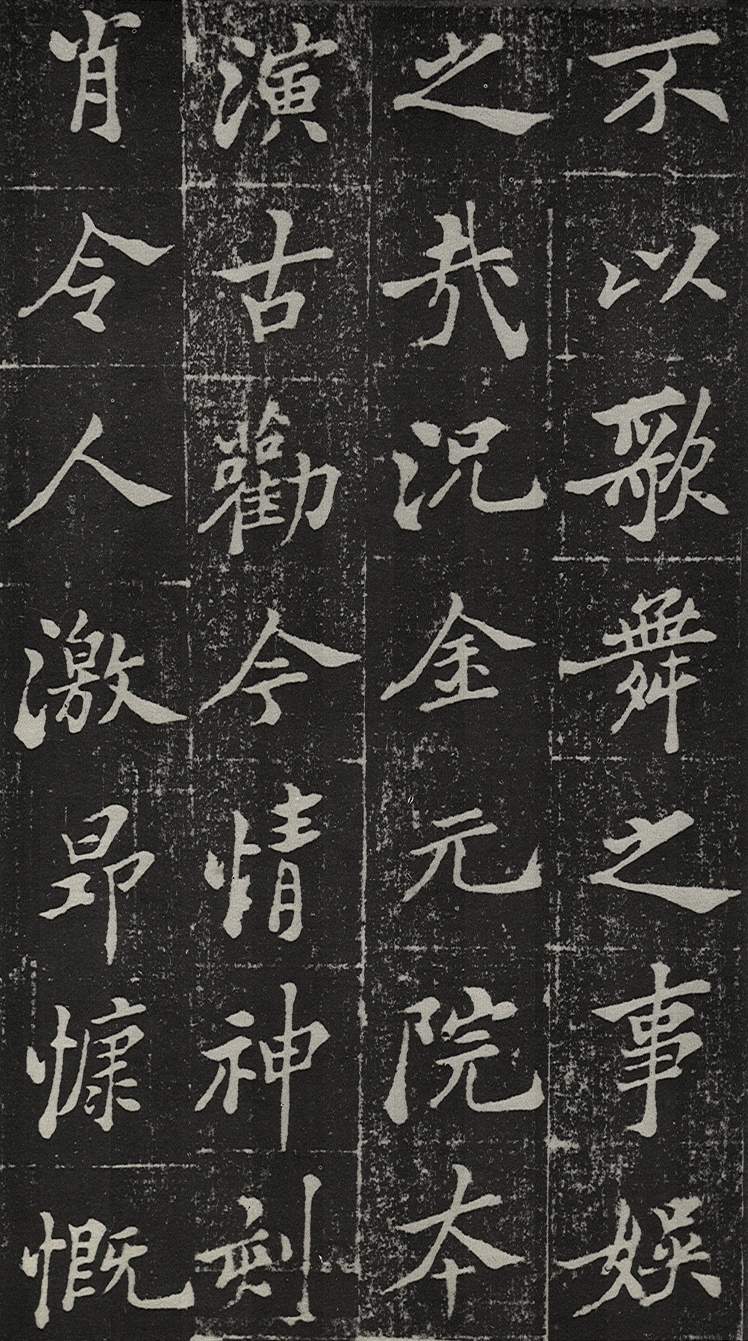 不以歌舞之事娱
之哉况金元院本
演古勸今情神刻
肖令人激昂慷慨